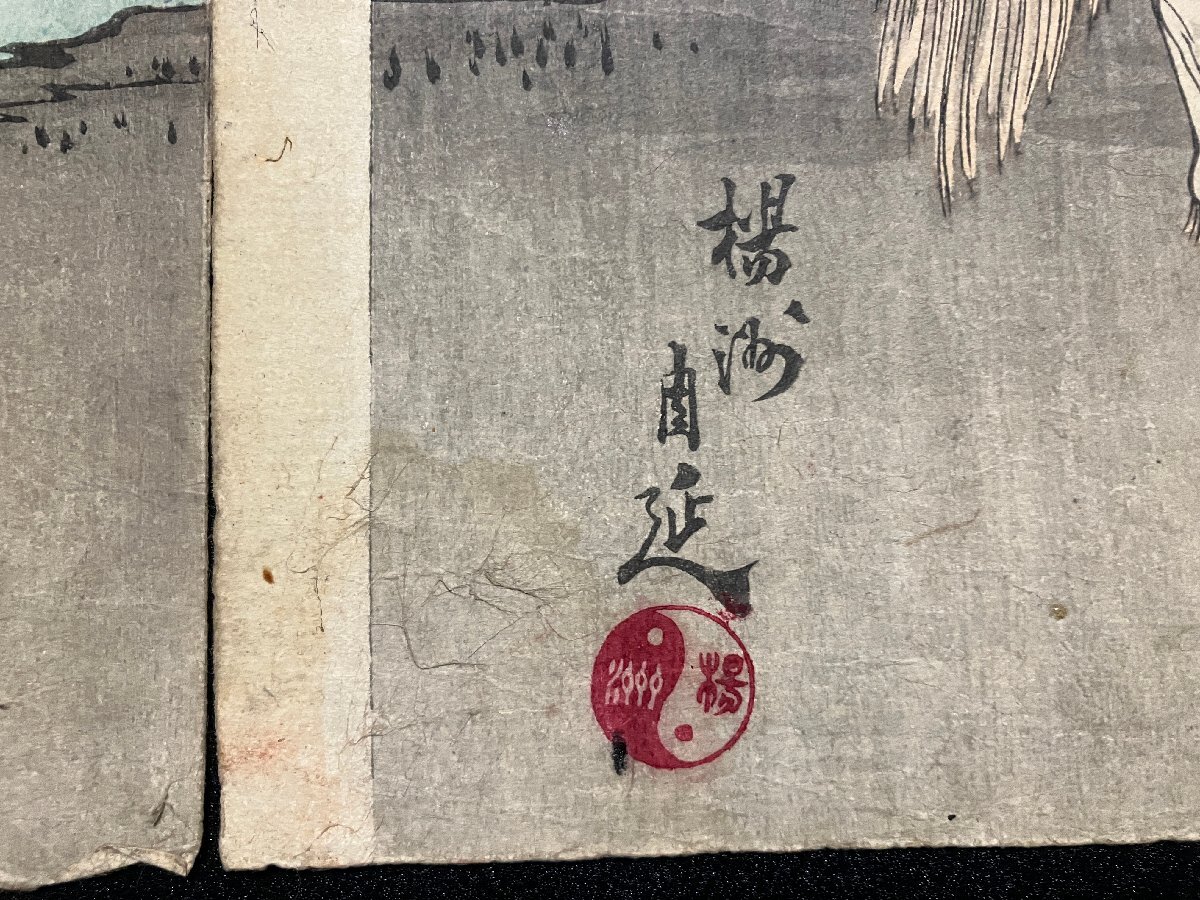 楊洲
周延
洲
楊